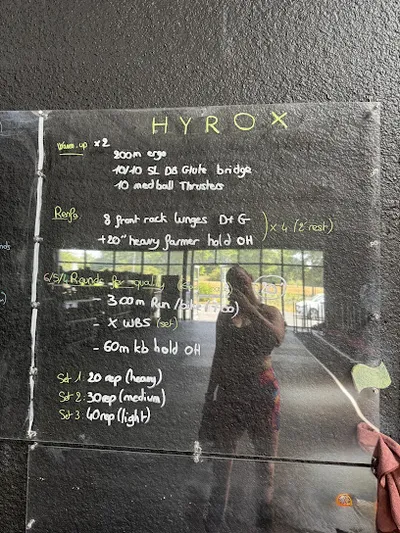 HYROX
Warm-up x2
200m ergo
10/10 SL DB Glute bridge
10 medball Thrusters
Renfo
8 front rack lunges D+G
+20" heavy farmer hold OH
x4 (2' rest)
6/5/4 Rounds for quality
- 300m Run /bike
- X WBS (set)
- 60m kb hold OH
Set 1: 20 rep (heavy)
Set 2: 30 rep (medium)
Set 3: 40 rep (light)